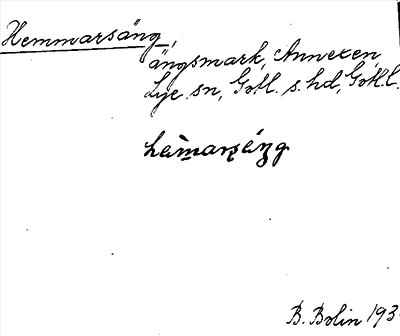 Hemmarsäng,
ängsmark, Annexen
Lye sn, Gotl. s. hd, Gotl. l.
B. Bolin 193